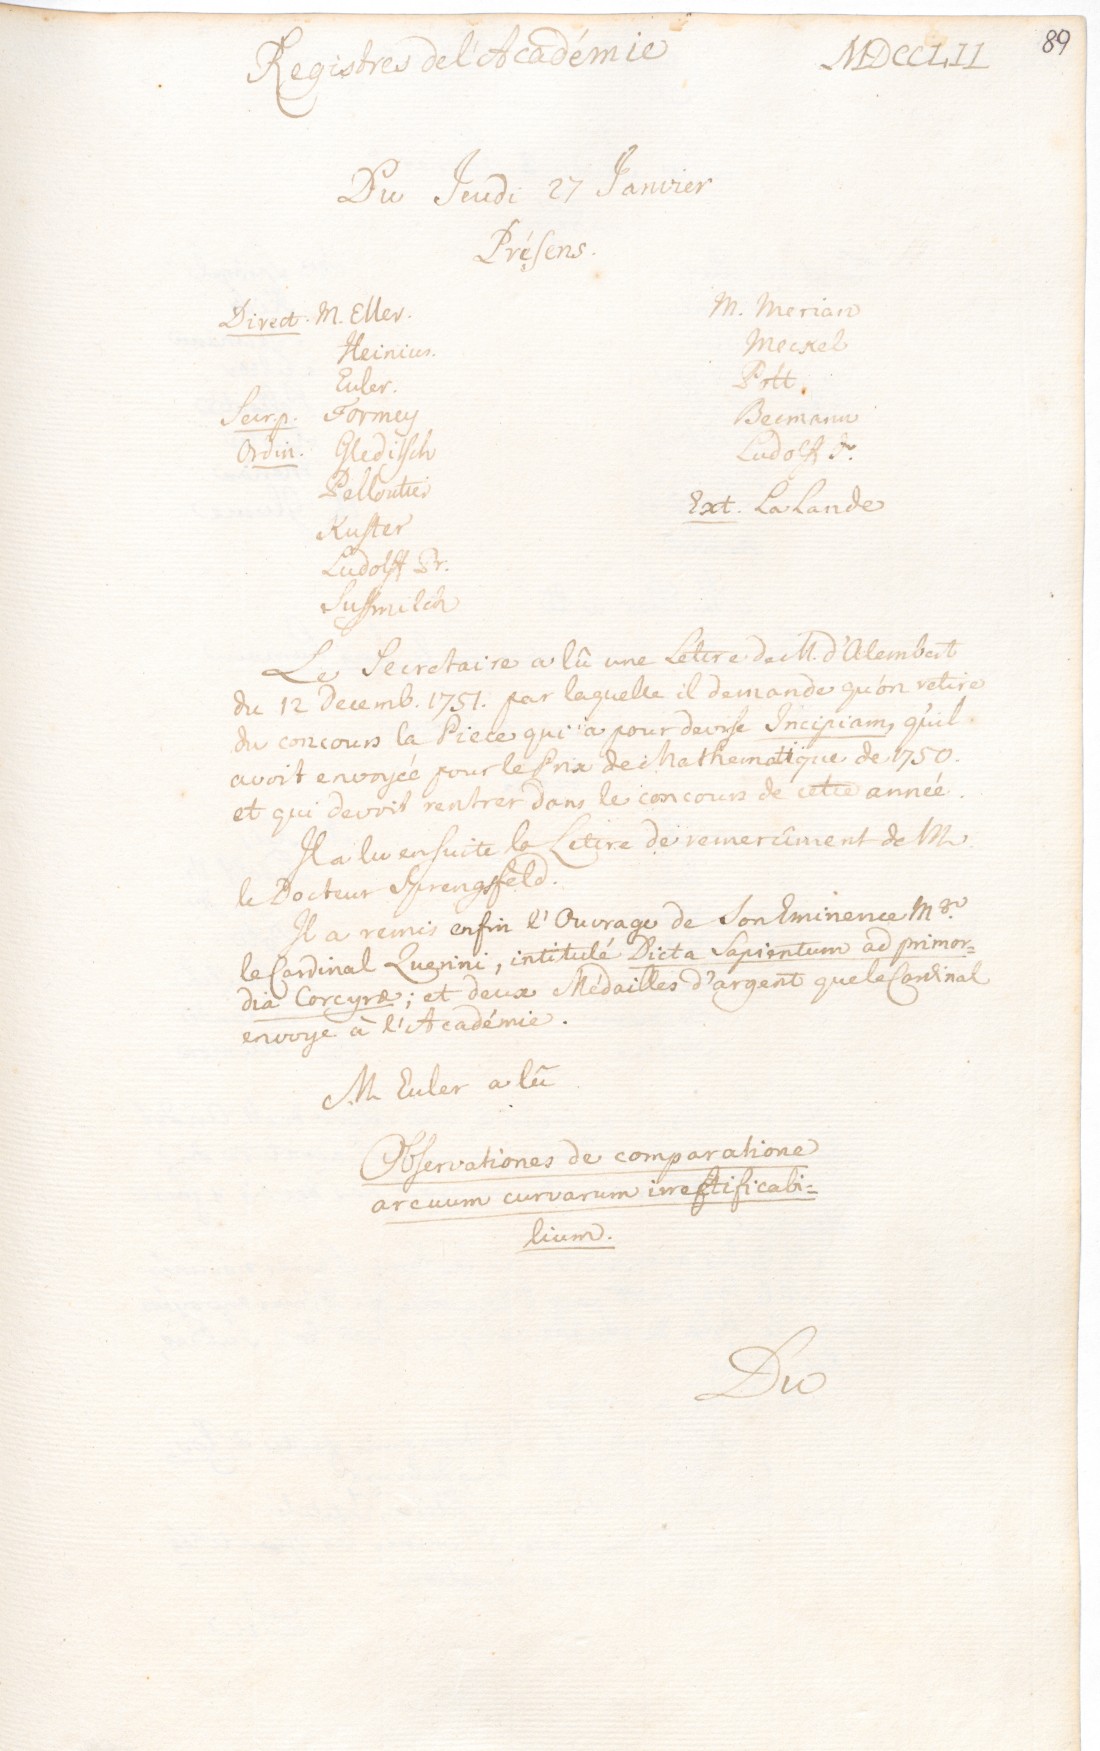 Registres de l'Académie MDCCLII 89
Du Jeudi 27 Janvier
Présens.
Direct. M. Eller.
Heinius.
Euler.
Secr. p. Formey
Ordin. Gleditsch
Pelloutier
Kuster
Ludolff Pr.
Sussmilch
M. Merian
Meckel
Pott.
Becmann
Ludolff Jr.
Ext. La Lande
Le Secretaire a lû une Lettre de M. d'Alembert
du 12 Decemb. 1751. par laquelle il demande qu'on retire
du concours la Piece qui a pour devise Incipiam, qu'il
avoit envoyée pour le Prix de Mathematique de 1750.
et qui devoit rentrer dans le concours de cette année.
Il a lu ensuite la Lettre de remercîment de M.
le Docteur Sprengsfeld.
Il a remis enfin l'Ouvrage de Son Eminence Mgr.
le Cardinal Querini, intitulé Dicta Sapientum ad primor=
dia Corcyræ; et deux Médailles d'argent que le Cardinal
envoye à l'Académie.
M. Euler a lû
Observationes de comparatione
arcuum curvarum irrectificabi=
lium.
Du